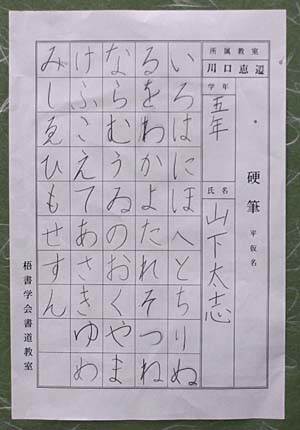 硬筆 平仮名
所属教室
川口
学年
五年
氏名
山下太志
いろはにほへとちりぬ
るをわかよたれそつね
ならむうゐのおくやま
けふこえてあさきゆめ
みしゑひもせすん
梧書学会書道教室